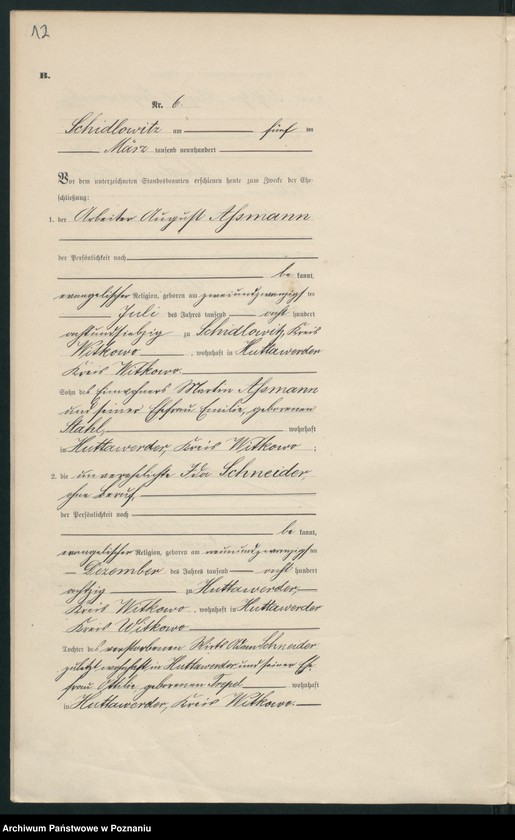 12
B.
Nr. 6.
Schidlowitz am fünf ten
März tausend neunhundert
Vor dem unterzeichneten Standesbeamten erschienen heute zum Zwecke der Ehe-
schließung:
1. der Arbeiter August Assmann
der Persönlichkeit nach
be kannt,
evangelischer Religion, geboren am zweiundzwanzigsten
Juli des Jahres tausend acht hundert
achtundsiebzig zu Schidlowitz, Kreis
Witkowo, wohnhaft in Huttawerder
Kreis Witkowo.
Sohn des Einwohners Martin Assmann
und seiner Ehefrau Emilie, geborenen
Stahl, wohnhaft
in Huttawerder, Kreis Witkowo;
2. die unverehelichte Ida Schneider,
ohne Beruf,
der Persönlichkeit nach
be kannt,
evangelischer Religion, geboren am neunundzwanzigsten
Dezember des Jahres tausend acht hundert
achtzig zu Huttawerder,
Kreis Witkowo, wohnhaft in Huttawerder
Kreis Witkowo
Tochter des verstorbenen Wirts Schneider
zuletzt wohnhaft in Huttawerder und seiner Ehe-
frau Ottilie geborenen wohnhaft
in Huttawerder, Kreis Witkowo.
Archiwum Państwowe w Poznaniu